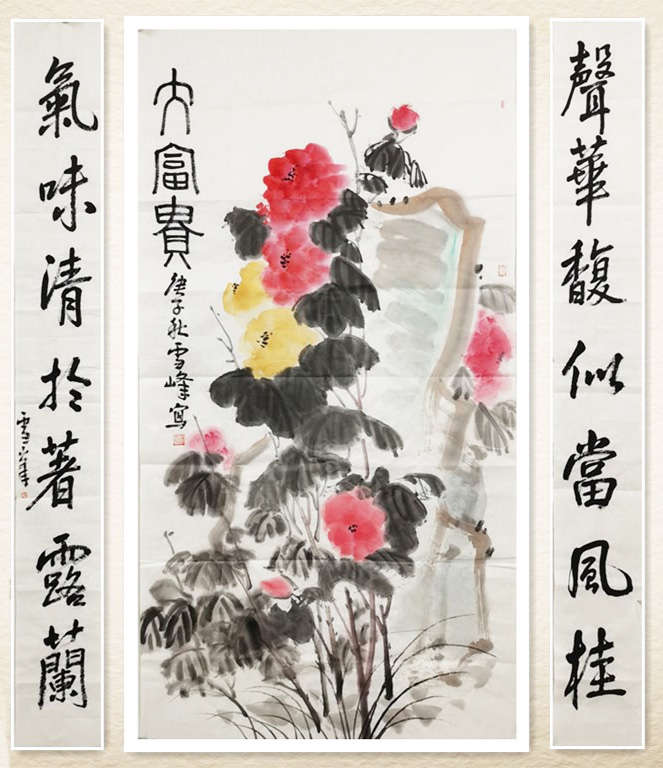 聲華馥似當風桂
大富貴
庚子秋雪峰寫
氣味清於著露蘭
雪峯